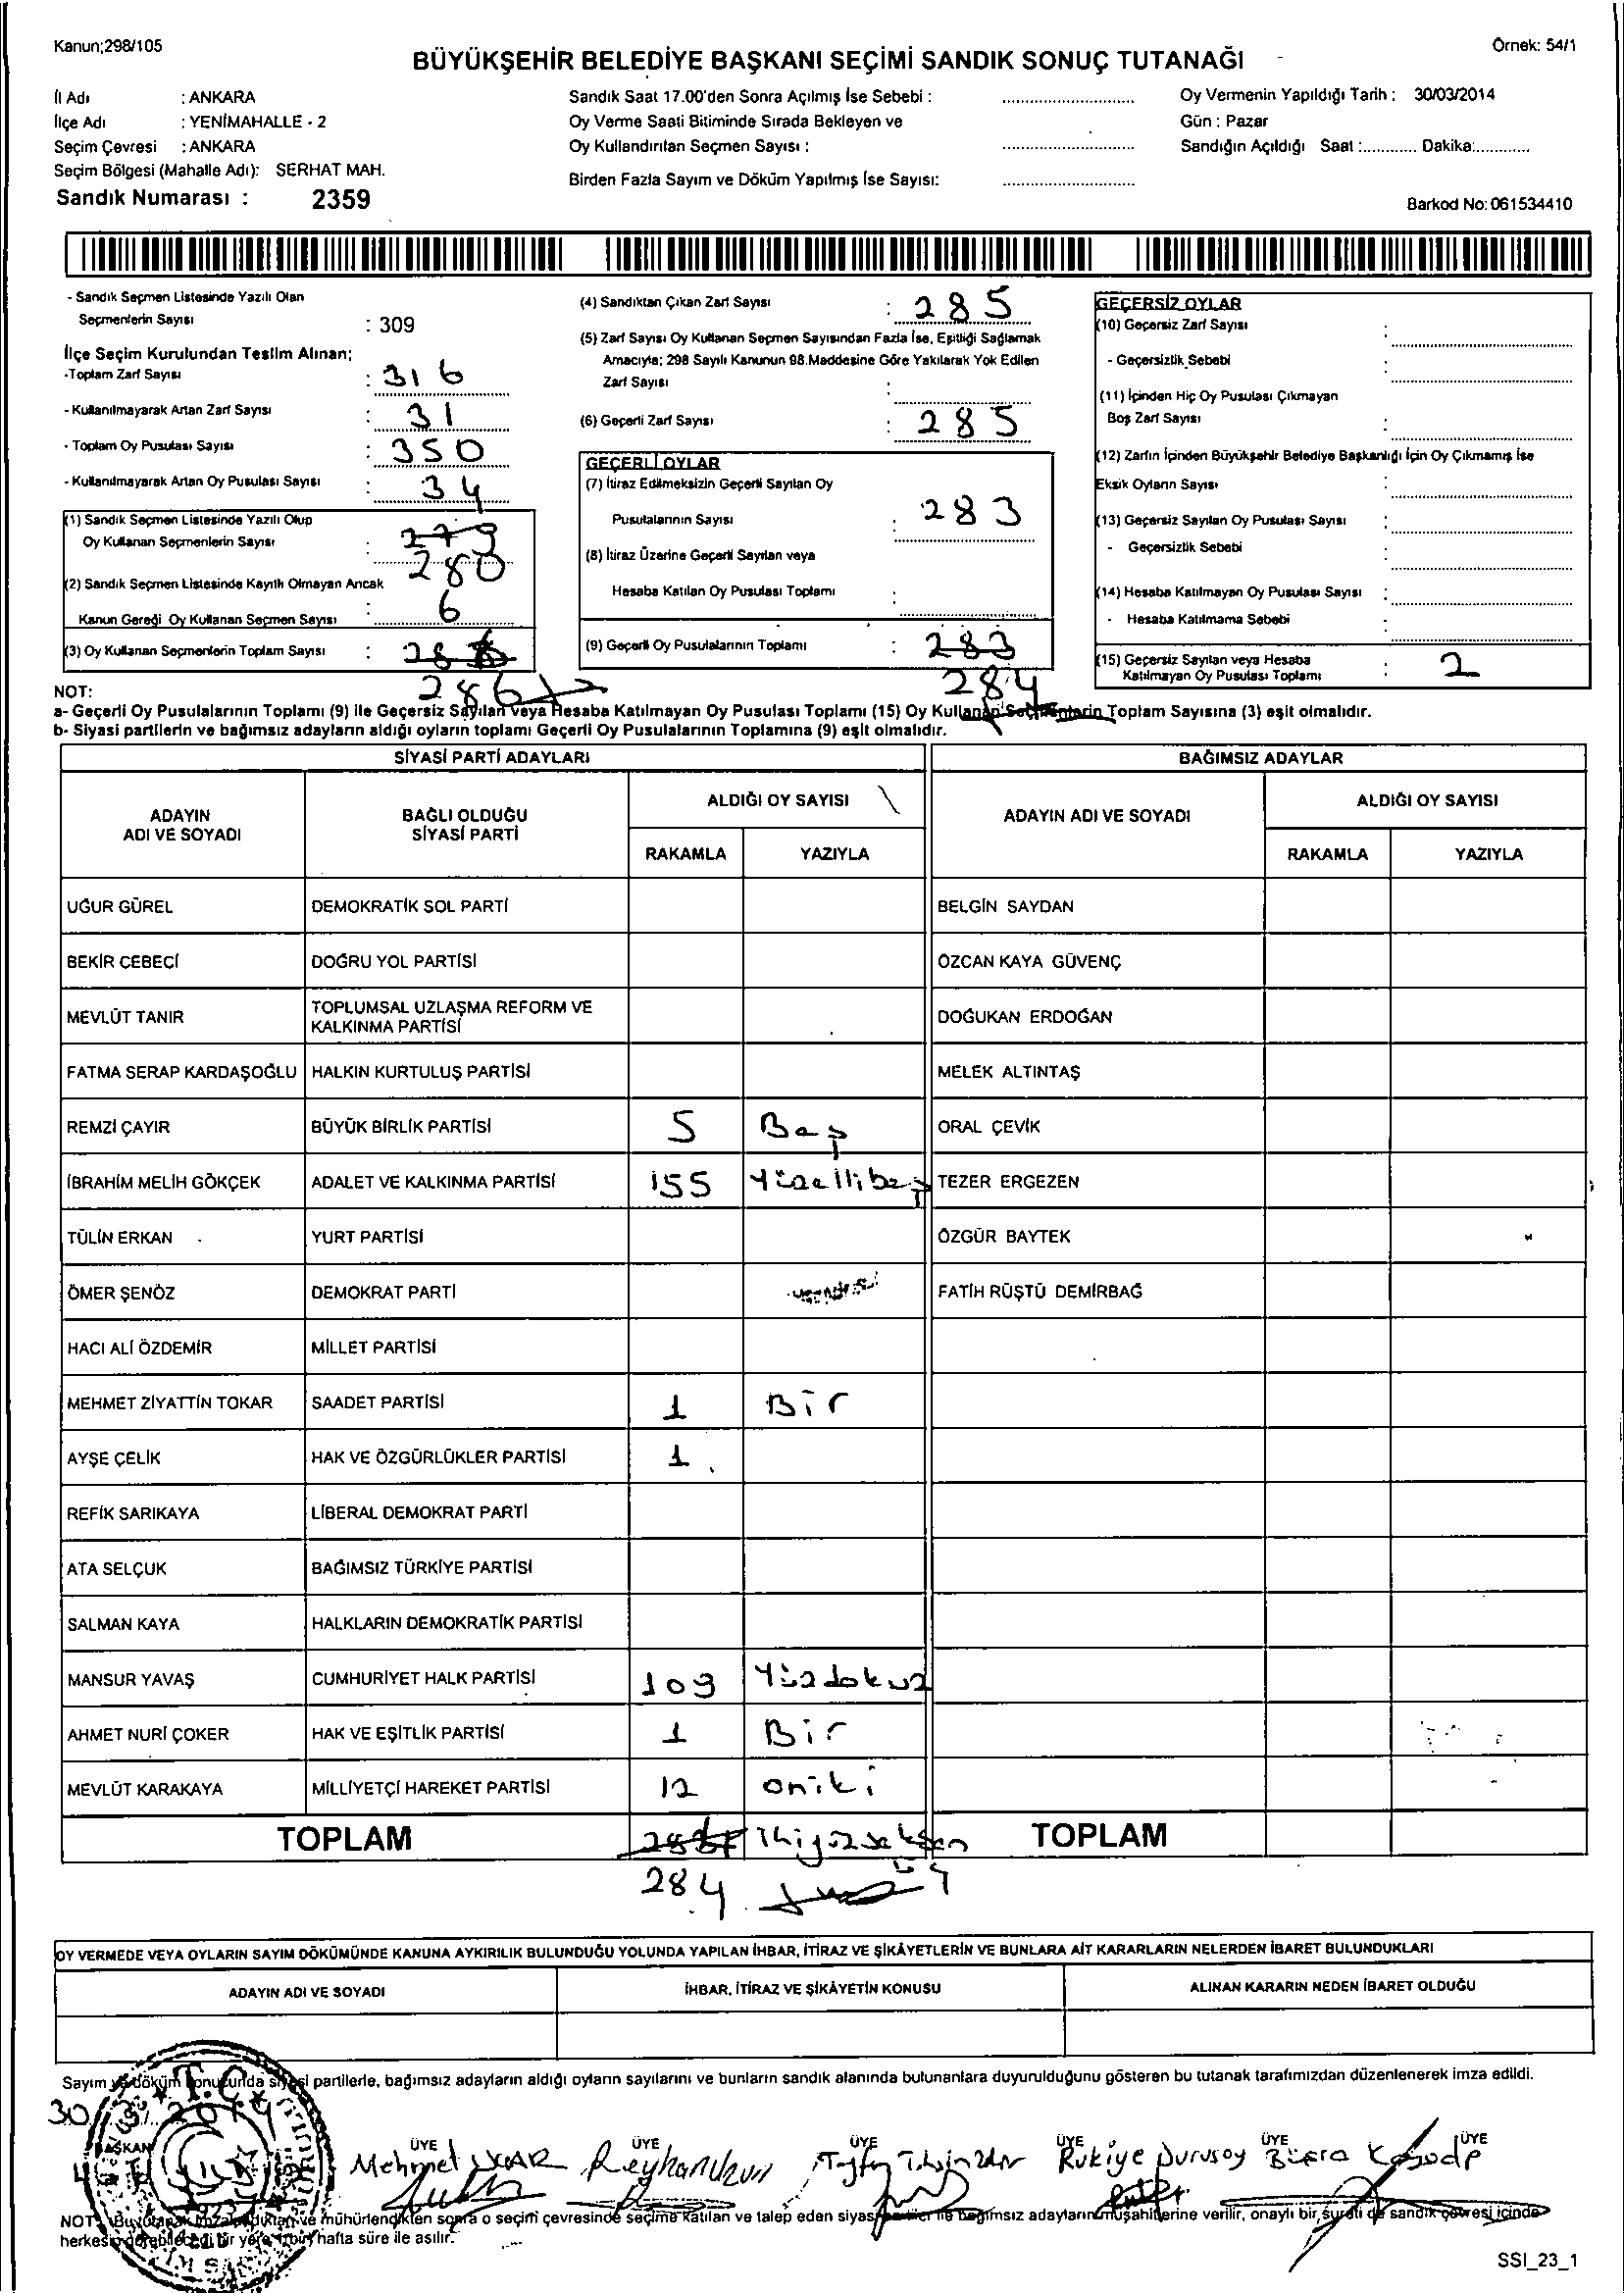 Kanun;298/105
Örnek: 54/1
BÜYÜKŞEHİR BELEDİYE BAŞKANI SEÇİMİ SANDIK SONUÇ TUTANAĞI
İl Adı : ANKARA
İlçe Adı : YENİMAHALLE - 2
Seçim Çevresi : ANKARA
Seçim Bölgesi (Mahalle Adı): SERHAT MAH.
Sandık Numarası : 2359
Sandık Saat 17.00'den Sonra Açılmış İse Sebebi :
Oy Verme Saati Bitiminde Sırada Bekleyen ve
Oy Kullandırılan Seçmen Sayısı :
Birden Fazla Sayım ve Döküm Yapılmış İse Sayısı:
Oy Vermenin Yapıldığı Tarih : 30/03/2014
Gün : Pazar
Sandığın Açıldığı Saat :............ Dakika:............
Barkod No: 061534410
- Sandık Seçmen Listesinde Yazılı Olan
Seçmenlerin Sayısı : 309
İlçe Seçim Kurulundan Teslim Alınan;
-Toplam Zarf Sayısı : 316
- Kullanılmayarak Artan Zarf Sayısı : 31
- Toplam Oy Pusulası Sayısı : 350
- Kullanılmayarak Artan Oy Pusulası Sayısı : 34
(1) Sandık Seçmen Listesinde Yazılı Olup
Oy Kullanan Seçmenlerin Sayısı : 279
280
(2) Sandık Seçmen Listesinde Kayıtlı Olmayan Ancak
Kanun Gereği Oy Kullanan Seçmen Sayısı : 6
(3) Oy Kullanan Seçmenlerin Toplam Sayısı :
286
(4) Sandıktan Çıkan Zarf Sayısı : 285
(5) Zarf Sayısı Oy Kullanan Seçmen Sayısından Fazla İse, Eşitliği Sağlamak
Amacıyla; 298 Sayılı Kanunun 98.Maddesine Göre Yakılarak Yok Edilen
Zarf Sayısı :
(6) Geçerli Zarf Sayısı : 285
GEÇERLİ OYLAR
(7) İtiraz Edilmeksizin Geçerli Sayılan Oy
Pusulalarının Sayısı : 283
(8) İtiraz Üzerine Geçerli Sayılan veya
Hesaba Katılan Oy Pusulası Toplamı :
(9) Geçerli Oy Pusulalarının Toplamı : 283
284
GEÇERSİZ OYLAR
(10) Geçersiz Zarf Sayısı :
- Geçersizlik Sebebi :
(11) İçinden Hiç Oy Pusulası Çıkmayan
Boş Zarf Sayısı :
(12) Zarfın İçinden Büyükşehir Belediye Başkanlığı İçin Oy Çıkmamış İse
Eksik Oyların Sayısı :
(13) Geçersiz Sayılan Oy Pusulası Sayısı :
- Geçersizlik Sebebi :
(14) Hesaba Katılmayan Oy Pusulası Sayısı :
- Hesaba Katılmama Sebebi :
(15) Geçersiz Sayılan veya Hesaba
Katılmayan Oy Pusulası Toplamı : 2
NOT:
a- Geçerli Oy Pusulalarının Toplamı (9) ile Geçersiz Sayılan veya Hesaba Katılmayan Oy Pusulası Toplamı (15) Oy Kullanan Seçmenlerin Toplam Sayısına (3) eşit olmalıdır.
b- Siyasi partilerin ve bağımsız adayların aldığı oyların toplamı Geçerli Oy Pusulalarının Toplamına (9) eşit olmalıdır.
SİYASİ PARTİ ADAYLARI BAĞIMSIZ ADAYLAR
ADAYIN ADI VE SOYADI BAĞLI OLDUĞU SİYASİ PARTİ ALDIĞI OY SAYISI ADAYIN ADI VE SOYADI ALDIĞI OY SAYISI
RAKAMLA YAZIYLA RAKAMLA YAZIYLA
UĞUR GÜREL DEMOKRATİK SOL PARTİ BELGİN SAYDAN
BEKİR CEBECİ DOĞRU YOL PARTİSİ ÖZCAN KAYA GÜVENÇ
MEVLÜT TANIR TOPLUMSAL UZLAŞMA REFORM VE KALKINMA PARTİSİ DOĞUKAN ERDOĞAN
FATMA SERAP KARDAŞOĞLU HALKIN KURTULUŞ PARTİSİ MELEK ALTINTAŞ
REMZİ ÇAYIR BÜYÜK BİRLİK PARTİSİ 5 Beş ORAL ÇEVİK
İBRAHİM MELİH GÖKÇEK ADALET VE KALKINMA PARTİSİ 155 Yüzellibeş TEZER ERGEZEN
TÜLİN ERKAN YURT PARTİSİ ÖZGÜR BAYTEK
ÖMER ŞENÖZ DEMOKRAT PARTİ FATİH RÜŞTÜ DEMİRBAĞ
HACI ALİ ÖZDEMİR MİLLET PARTİSİ
MEHMET ZİYATTİN TOKAR SAADET PARTİSİ 1 Bir
AYŞE ÇELİK HAK VE ÖZGÜRLÜKLER PARTİSİ 1
REFİK SARIKAYA LİBERAL DEMOKRAT PARTİ
ATA SELÇUK BAĞIMSIZ TÜRKİYE PARTİSİ
SALMAN KAYA HALKLARIN DEMOKRATİK PARTİSİ
MANSUR YAVAŞ CUMHURİYET HALK PARTİSİ 109 Yüzdokuz
AHMET NURİ ÇOKER HAK VE EŞİTLİK PARTİSİ 1 Bir
MEVLÜT KARAKAYA MİLLİYETÇİ HAREKET PARTİSİ 12 oniki
TOPLAM İkiyüzseksen TOPLAM
284
OY VERMEDE VEYA OYLARIN SAYIM DÖKÜMÜNDE KANUNA AYKIRILIK BULUNDUĞU YOLUNDA YAPILAN İHBAR, İTİRAZ VE ŞİKÂYETLERİN VE BUNLARA AİT KARARLARIN NELERDEN İBARET BULUNDUKLARI
ADAYIN ADI VE SOYADI İHBAR, İTİRAZ VE ŞİKÂYETİN KONUSU ALINAN KARARIN NEDEN İBARET OLDUĞU
Sayım ve döküm sonucunda siyasi partilerle, bağımsız adayların aldığı oyların sayılarını ve bunların sandık alanında bulunanlara duyurulduğunu gösteren bu tutanak tarafımızdan düzenlenerek imza edildi.
30 3 2014
T.C.
BAŞKAN ÜYE ÜYE ÜYE ÜYE ÜYE ÜYE
Mehmet UÇAR Reyhan Uzun Rukiye Durusoy Büşra
NOT: Bu tutanak imzalandıktan ve mühürlendikten sonra o seçim çevresinde seçime katılan ve talep eden siyasi partiler ile bağımsız adayların müşahitlerine verilir, onaylı bir sureti de sandık çevresi içinde
herkesin görebileceği bir yere, 1 bir hafta süre ile asılır.
SSI_23_1